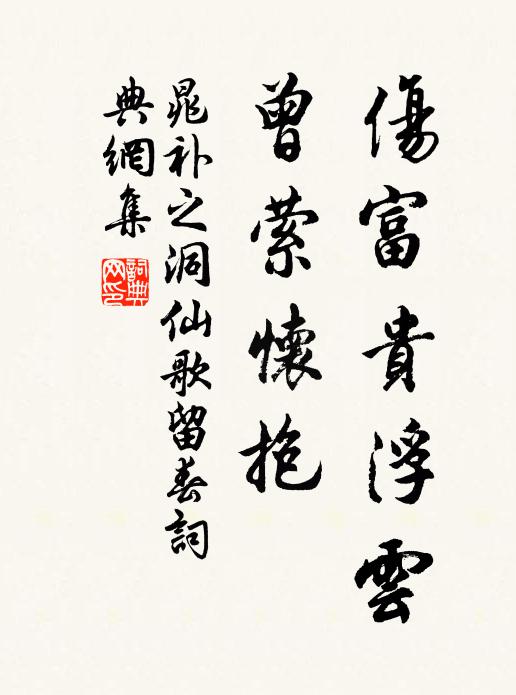 傷富貴浮雲
曾縈懷抱
晁補之洞仙歌留春詞
典網集
詞典網印